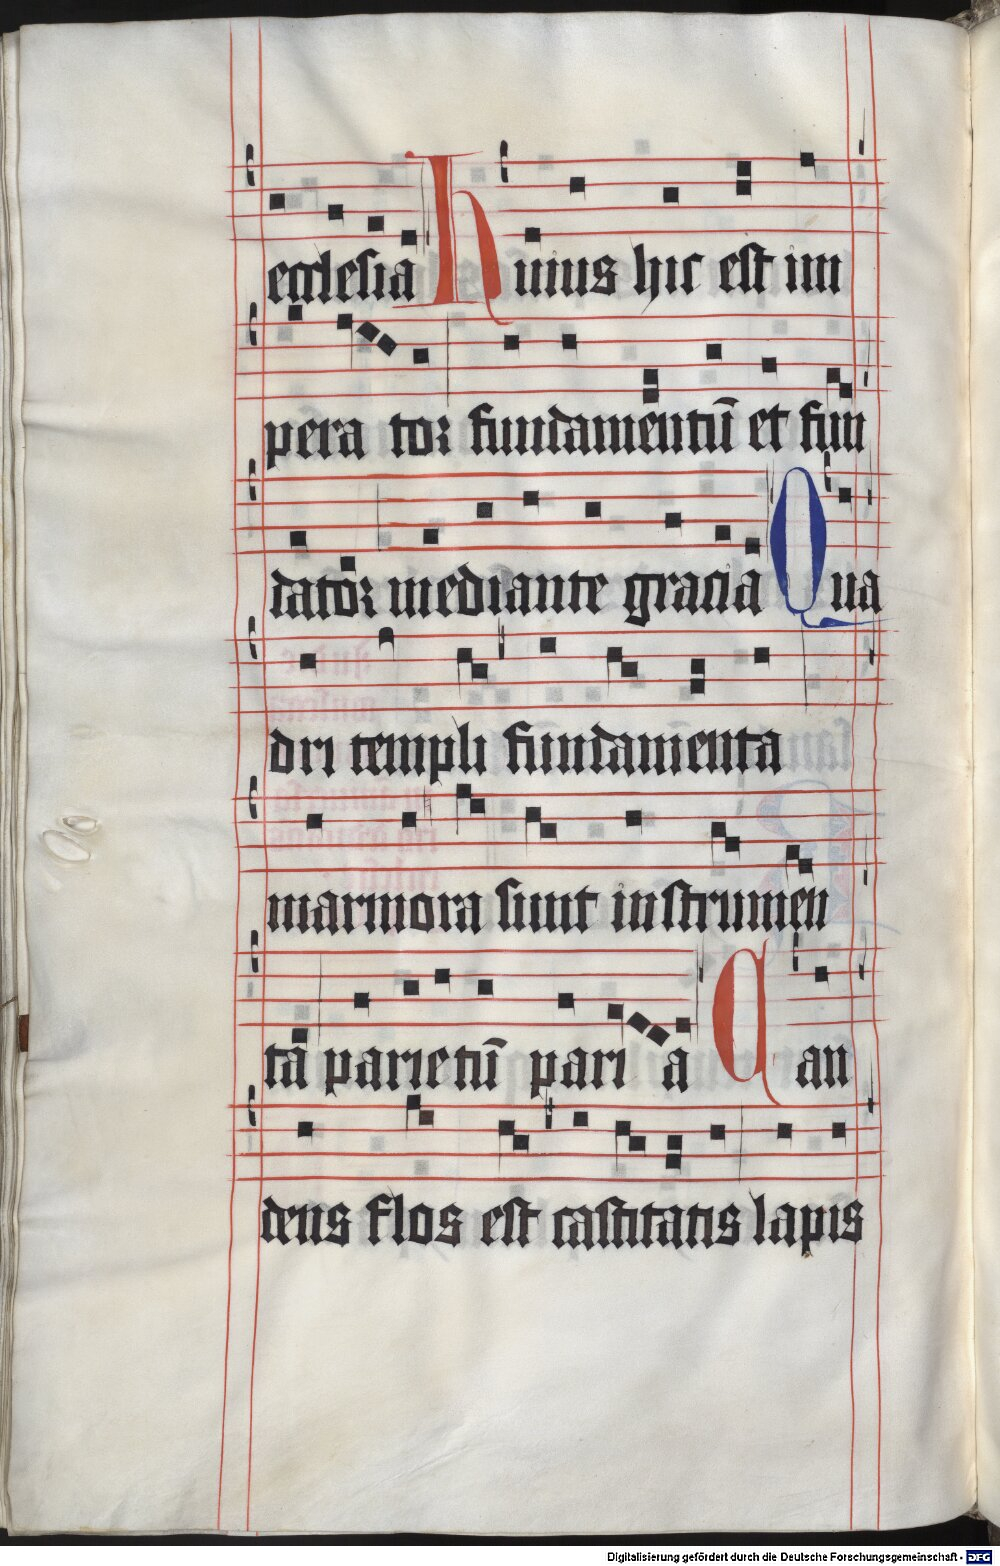 ecclesia Huius hic est im
pera tor fundamentū et fun
dator mediante gracia Qua
dri templi fundamenta
marmora sunt instrumen
ta parietū pari a Can
dens flos est castitatis lapis
Digitalisierung gefördert durch die Deutsche Forschungsgemeinschaft - DFG